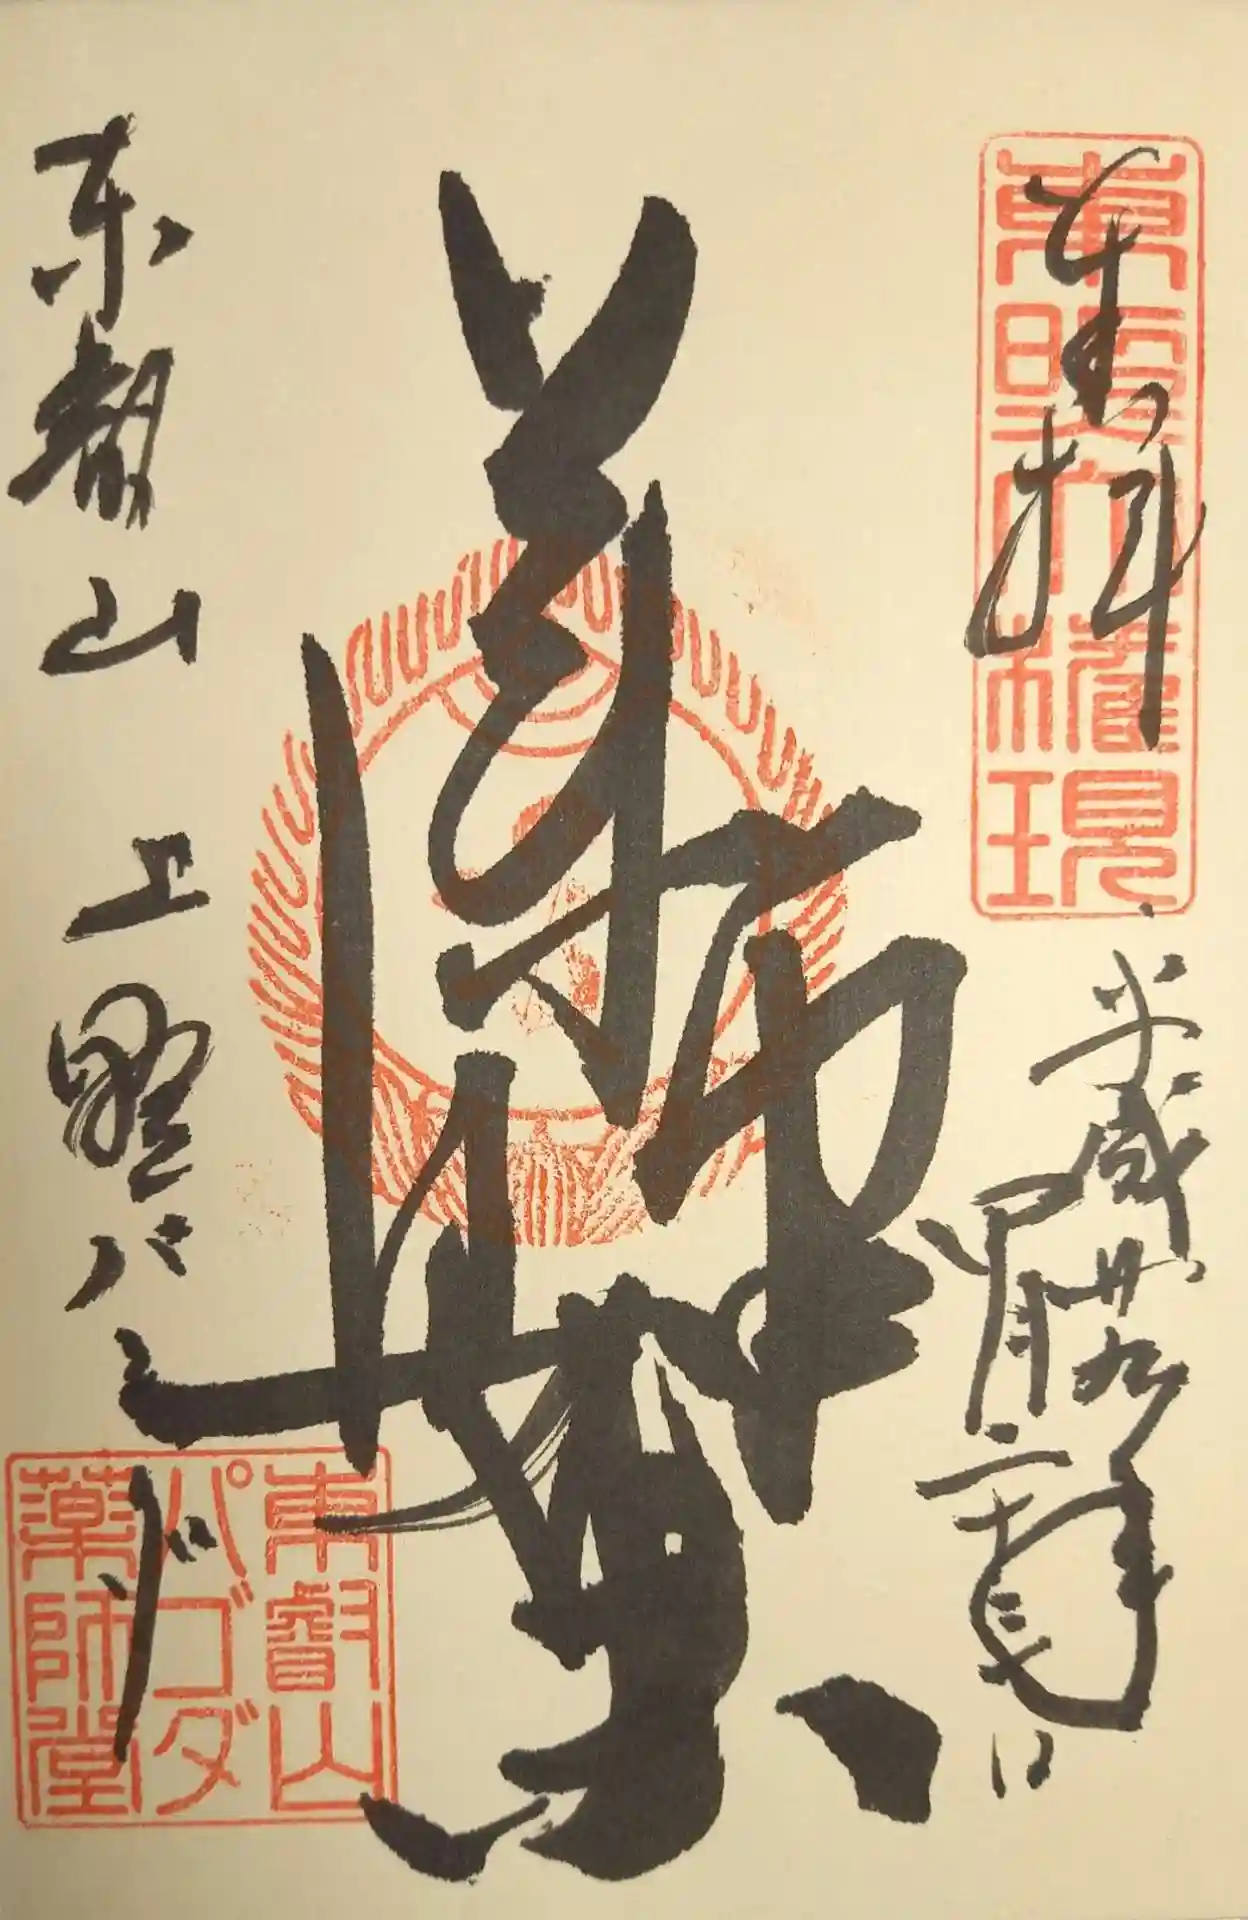 奉拝
東照大権現
平成廿九年
四月二十三日
薬師
東叡山 上野パゴダ
東叡山
パゴダ
薬師堂